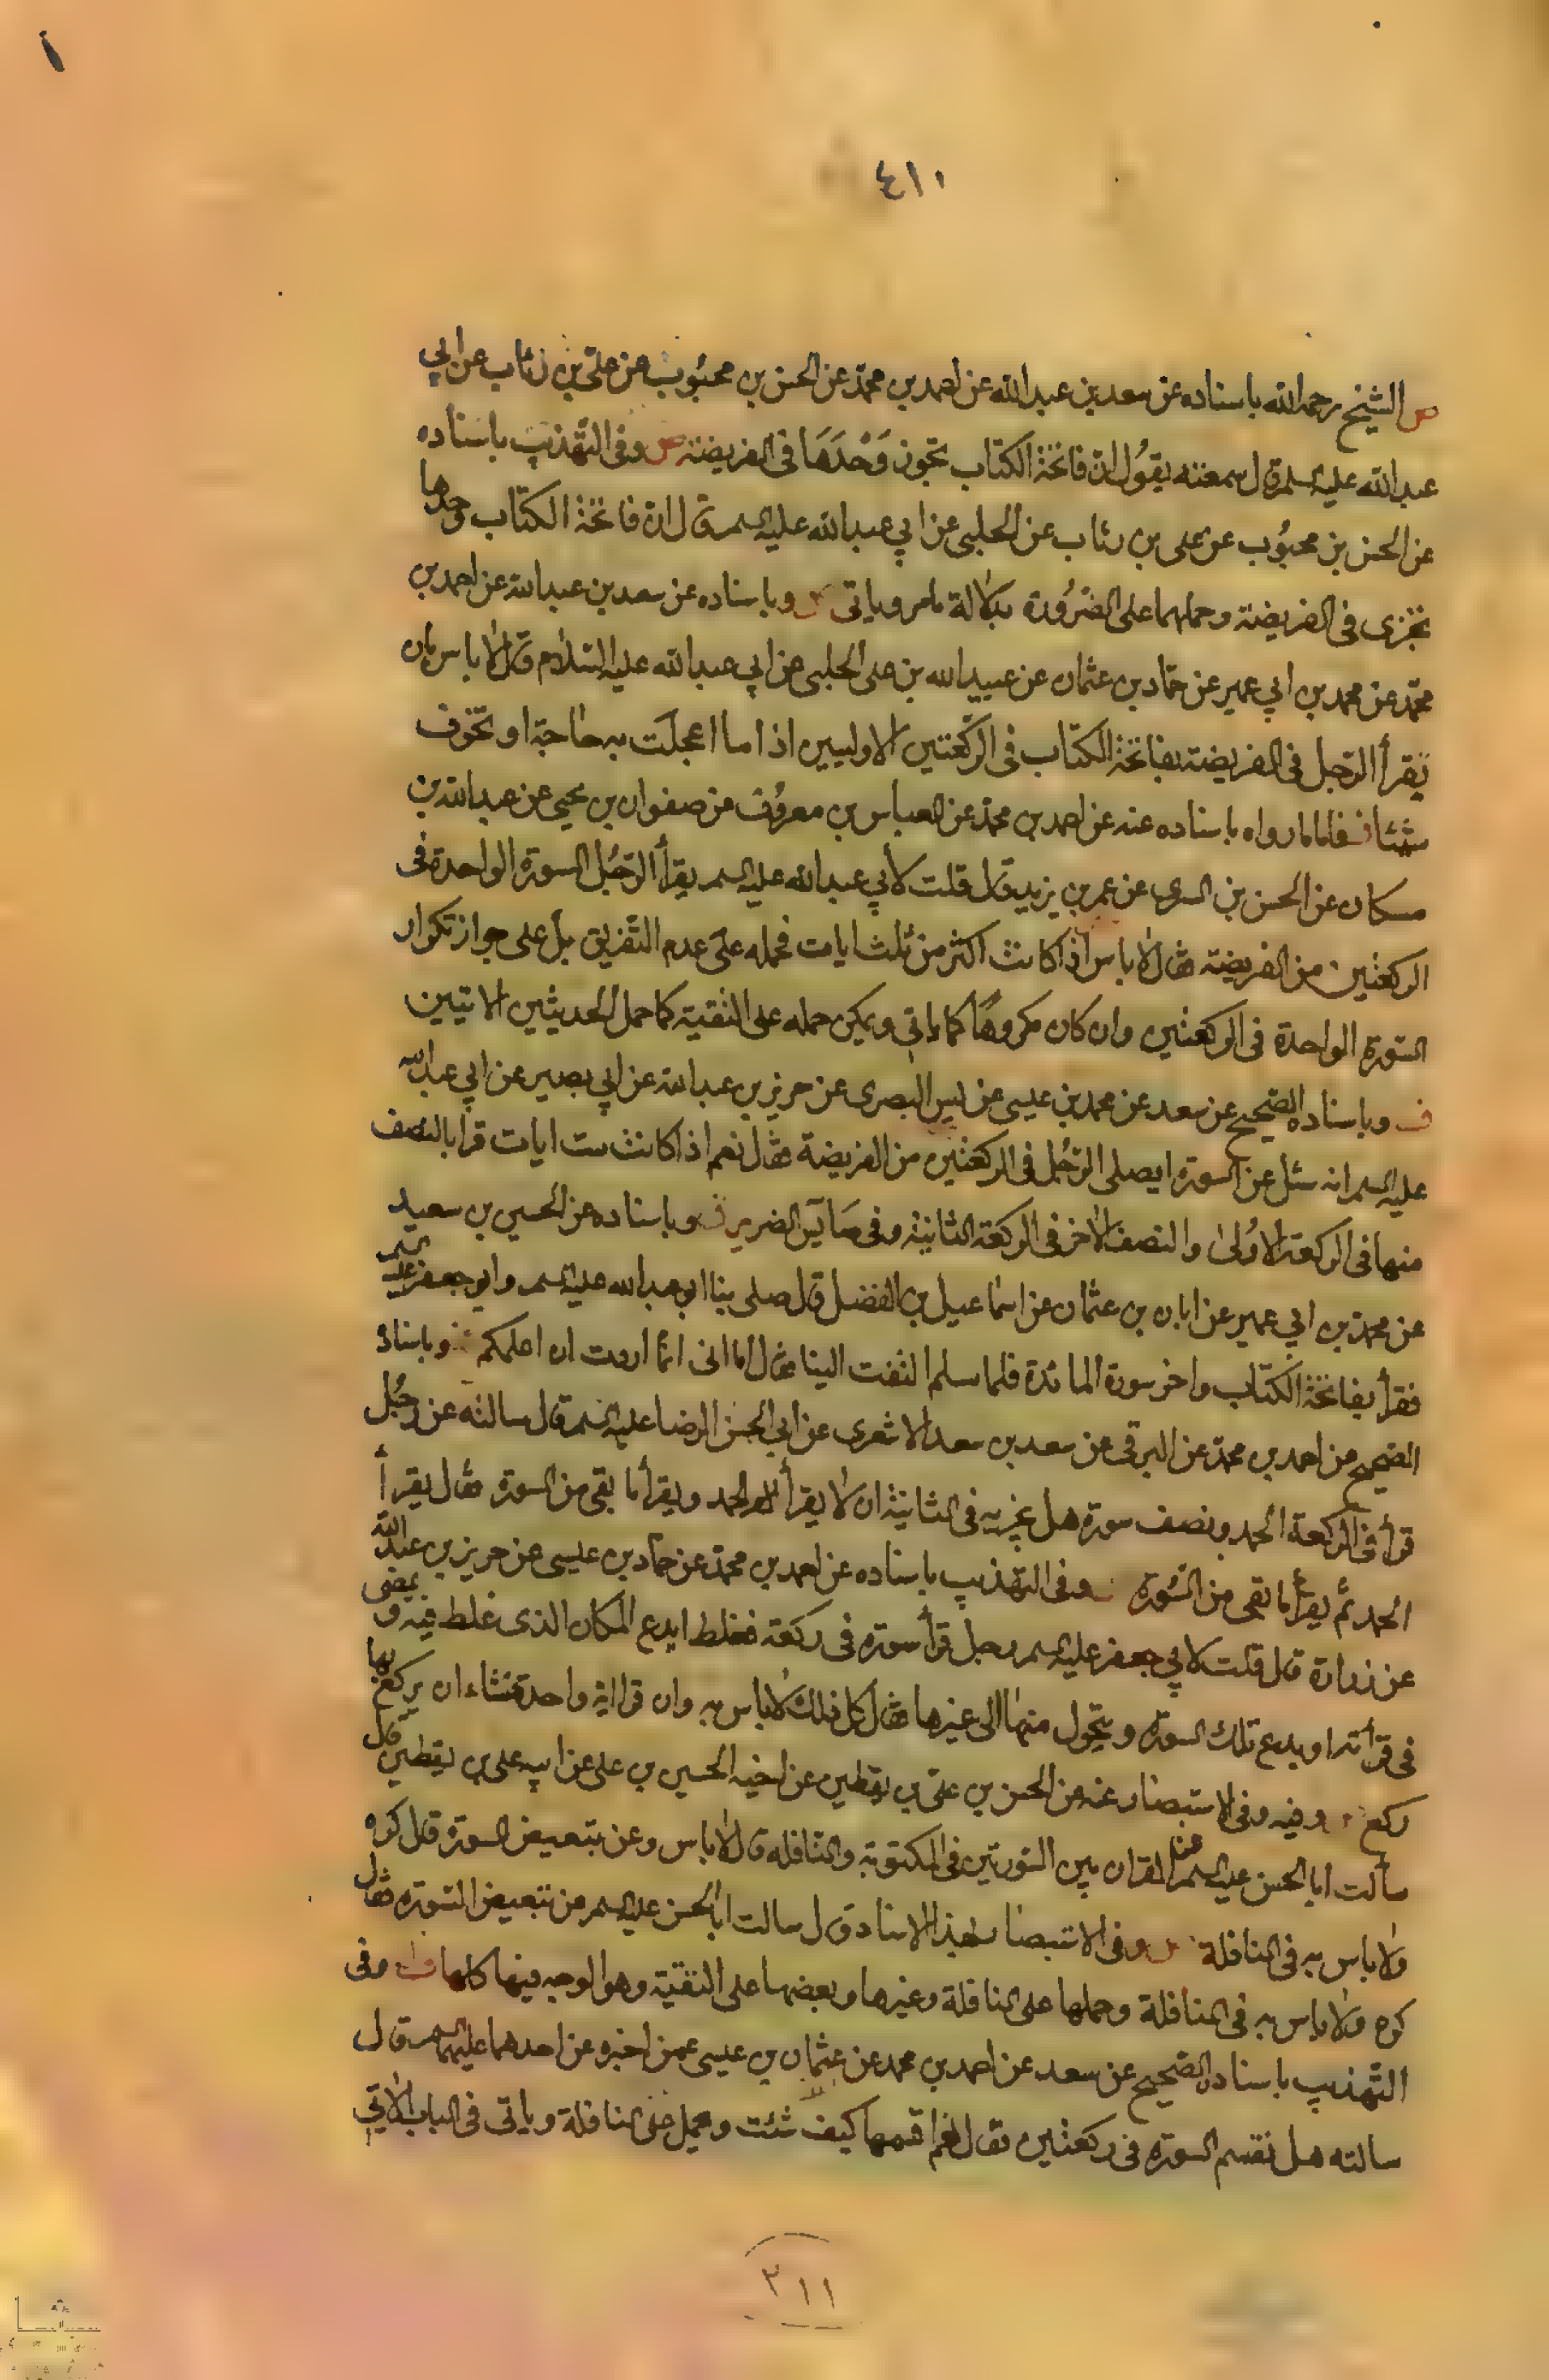 ٤١٠
ص الشيخ رحمه الله باسناده عن سعد بن عبد الله عن احمد بن محمد عن الحسن بن محبوب عن علي بن رئاب عن ابي
عبد الله عليه السلم قال سمعته يقول ان فاتحة الكتاب تجوز وحدها في الفريضة ص وفي التهذيب باسناده
عن الحسن بن محبوب عن علي بن رئاب عن الحلبي عن ابي عبد الله عليه السلم قال ان فاتحة الكتاب وحدها
تجزى في الفريضة وحملهما على الضرورة بدلالة مامر وياتي وباسناده عن سعد بن عبد الله عن احمد بن
محمد عن محمد بن ابي عمير عن حماد بن عثمان عن عبيد الله بن على الحلبي عن ابي عبد الله عليه السلام قال لا باس بان
يقرأ الرجل في الفريضة بفاتحة الكتاب في الركعتين الاوليين اذا ما اعجلت به حاجة او تخوف
شيئا فاما ما رواه باسناده عنه عن احمد بن محمد عن العباس بن معروف عن صفوان بن يحيى عن عبد الله بن
مسكان عن الحسن بن السرى عن عمر بن يزيد قال قلت لأبي عبد الله عليه السلم يقرأ الرجل السورة الواحدة في
الركعتين من الفريضة فقال لا باس اذا كانت اكثر من ثلث ايات فحمله على عدم التفريق بل على جواز تكرار
السورة الواحدة في الركعتين وان كان مكروها كما ياتي ويمكن حمله على التقية كما حمل الحديثين الاتيين
وباسناده الصحيح عن سعد عن محمد بن عيسى عن يس البصرى عن حريز بن عبد الله عن ابي بصير عن ابي عبد الله
عليه السلم انه سئل عن السورة ايصلى الرجل في الركعتين من الفريضة فقال نعم اذا كانت ست ايات قرا بالنصف
منها في الركعة الاولى والنصف الاخر في الركعة الثانية وفي صا يس الضرير وباسناده عن الحسين بن سعيد
عن محمد بن ابي عمير عن ابان بن عثمان عن اسماعيل بن الفضل قال صلى بنا ابو عبد الله عليه السلم وابو جعفر عليه السلم
فقرأ بفاتحة الكتاب واخر سورة المائدة فلما سلم التفت الينا فقال اما انى انما اردت ان اعلمكم وباسناده
الصحيح عن احمد بن محمد عن البرقي عن سعد بن سعد الاشعرى عن ابي الحسن الرضا عليه السلم قال سالته عن رجل
قرأ في الركعة الحمد ونصف سورة هل يجزيه في الثانية ان لا يقرأ الحمد ويقرأ ما بقى من السورة فقال يقرأ
الحمد ثم يقرأ ما بقى من السورة وفي التهذيب باسناده عن احمد بن محمد عن حماد بن عيسى عن حريز بن عبد الله
عن زرارة قال قلت لابي جعفر عليه السلم رجل قرأ سورة في ركعة فغلط ايدع المكان الذى غلط فيه ويمضى
في قرأته او يدع تلك السورة ويتحول منها الى غيرها فقال كل ذلك لا باس به وان قرا اية واحدة فشاء ان يركع بها
ركع وفيه وفي الاستبصار عنه عن الحسن بن علي بن يقطين عن اخيه الحسين بن علي عن ابيه علي بن يقطين قال
سألت ابا الحسن عليه السلم عن القران بين السورتين في المكتوبة والنافله قال لا باس وعن تبعيض السورة قال اكره
ولا باس به في النافلة وفي الاستبصار بهذا الاسناد قال سالت ابا الحسن عليه السلم عن تبعيض السورة فقال
كره ولا باس به في النافلة وحملها على النافلة وغيرها وبعضها على التقية وهو الوجه فيها كلها وفي
التهذيب باسناده الصحيح عن سعد عن احمد بن محمد عن عثمان بن عيسى عمن اخبره عن احدهما عليهما السلم قال
سالته هل نقسم السورة في ركعتين فقال نعم اقسمها كيف شئت وحمل على النافلة وياتي في الباب الاتي
٢١١